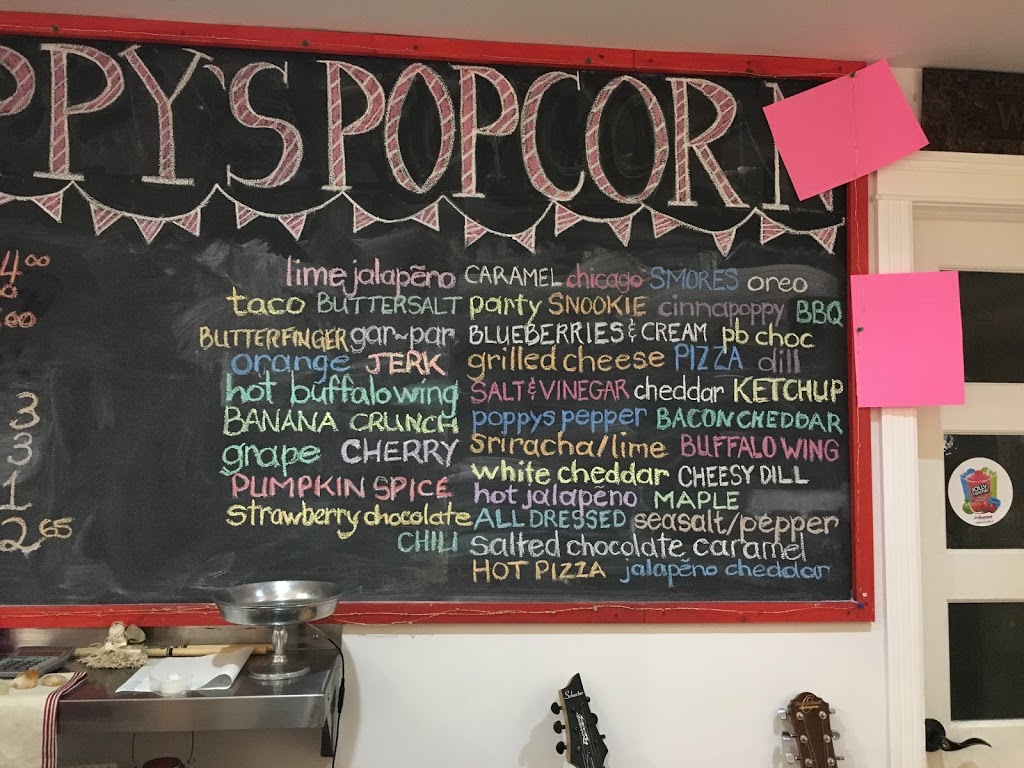 PPY'S POPCORN
4.00
.00
3
3
1
2.65
lime jalapēno CARAMEL chicago SMORES oreo
taco BUTTERSALT party SNOOKIE cinnapoppy BBQ
BUTTERFINGER gar~par BLUEBERRIES & CREAM pb choc
orange JERK grilled cheese PIZZA dill
hot buffalo wing SALT & VINEGAR cheddar KETCHUP
BANANA CRUNCH poppys pepper BACON CHEDDAR
grape CHERRY sriracha/lime BUFFALO WING
white cheddar CHEESY DILL
PUMPKIN SPICE hot jalapeno MAPLE
strawberry chocolate ALL DRESSED seasalt/pepper
CHILI salted chocolate caramel
HOT PIZZA jalapēno cheddar
W
JOLLY
Schecter